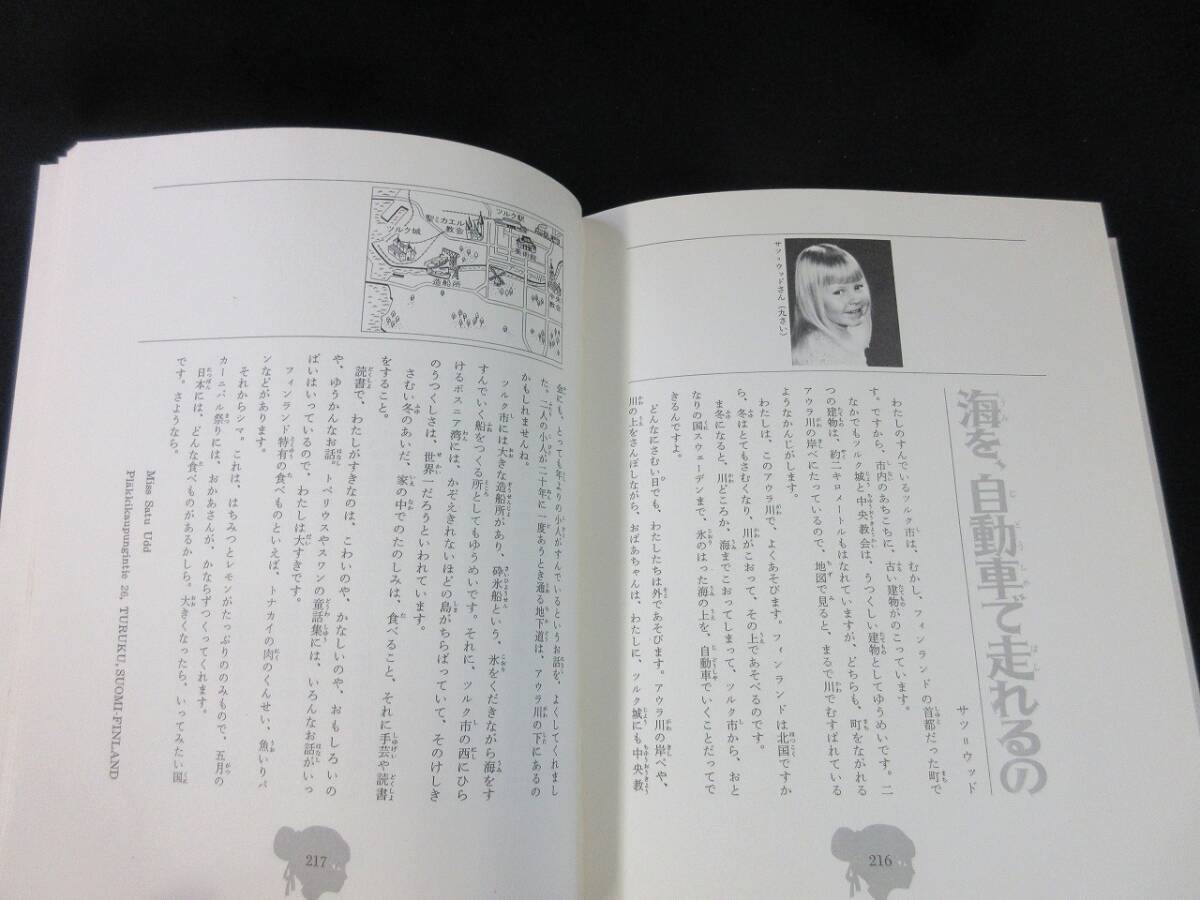 海を、自動車で走れるの
サツ=ウッド
サツ=ウッドさん(九さい)
わたしのすんでいるツルク市は、むかし、フィンランドの首都だった町で
す。ですから、市内のあちこちに、古い建物がのこっています。
なかでもツルク城と中央教会は、うつくしい建物としてゆうめいです。二
つの建物は、約二キロメートルもはなれていますが、どちらも、町をながれる
アウラ川の岸べにたっているので、地図で見ると、まるで川でむすばれている
ようなかんじがします。
わたしは、このアウラ川で、よくあそびます。フィンランドは北国ですか
ら、冬はとてもさむくなり、川がこおって、その上であそべるのです。
ま冬になると、川どころか、海までこおってしまって、ツルク市から、おと
なりの国スウェーデンまで、氷のはった海の上を、自動車でいくことだってで
きるんですよ。
どんなにさむい日でも、わたしたちは外であそびます。アウラ川の岸べや、
川の上をさんぽしながら、おばあちゃんは、わたしに、ツルク城にも中央教
216
会にも、とっても年よりの小人がすんでいるというお話を、よくしてくれまし
た。二人の小人が二十年に一度あうとき通る地下道は、アウラ川の下にあるの
かもしれませんね。
ツルク市には大きな造船所があり、砕氷船という、氷をくだきながら海をす
すんでいく船をつくる所としてもゆうめいです。それに、ツルク市の西にひら
けるボスニア湾には、かぞえきれないほどの島がちらばっていて、そのけしき
のうつくしさは、世界一だろうといわれています。
さむい冬のあいだ、家の中でのたのしみは、食べること、それに手芸や読書
をすること。
読書で、わたしがすきなのは、こわいのや、かなしいのや、おもしろいの
や、ゆうかんなお話。トペリウスやスワンの童話集には、いろんなお話がいっ
ぱいはいっているので、わたしは大すきです。
フィンランド特有の食べものといえば、トナカイの肉のくんせい、魚いりパ
ンなどがあります。
それからシマ。これは、はちみつとレモンがたっぷりののみもので、五月の
カーニバル祭りには、おかあさんが、かならずつくってくれます。
日本には、どんな食べものがあるかしら。大きくなったら、いってみたい国
です。さようなら。
Miss Satu Udd
Pläkkikaupungintie 26, TURUKU, SUOMI-FINLAND
ツルク駅
聖ミカエル教会
ツルク城
美術館
造船所
217